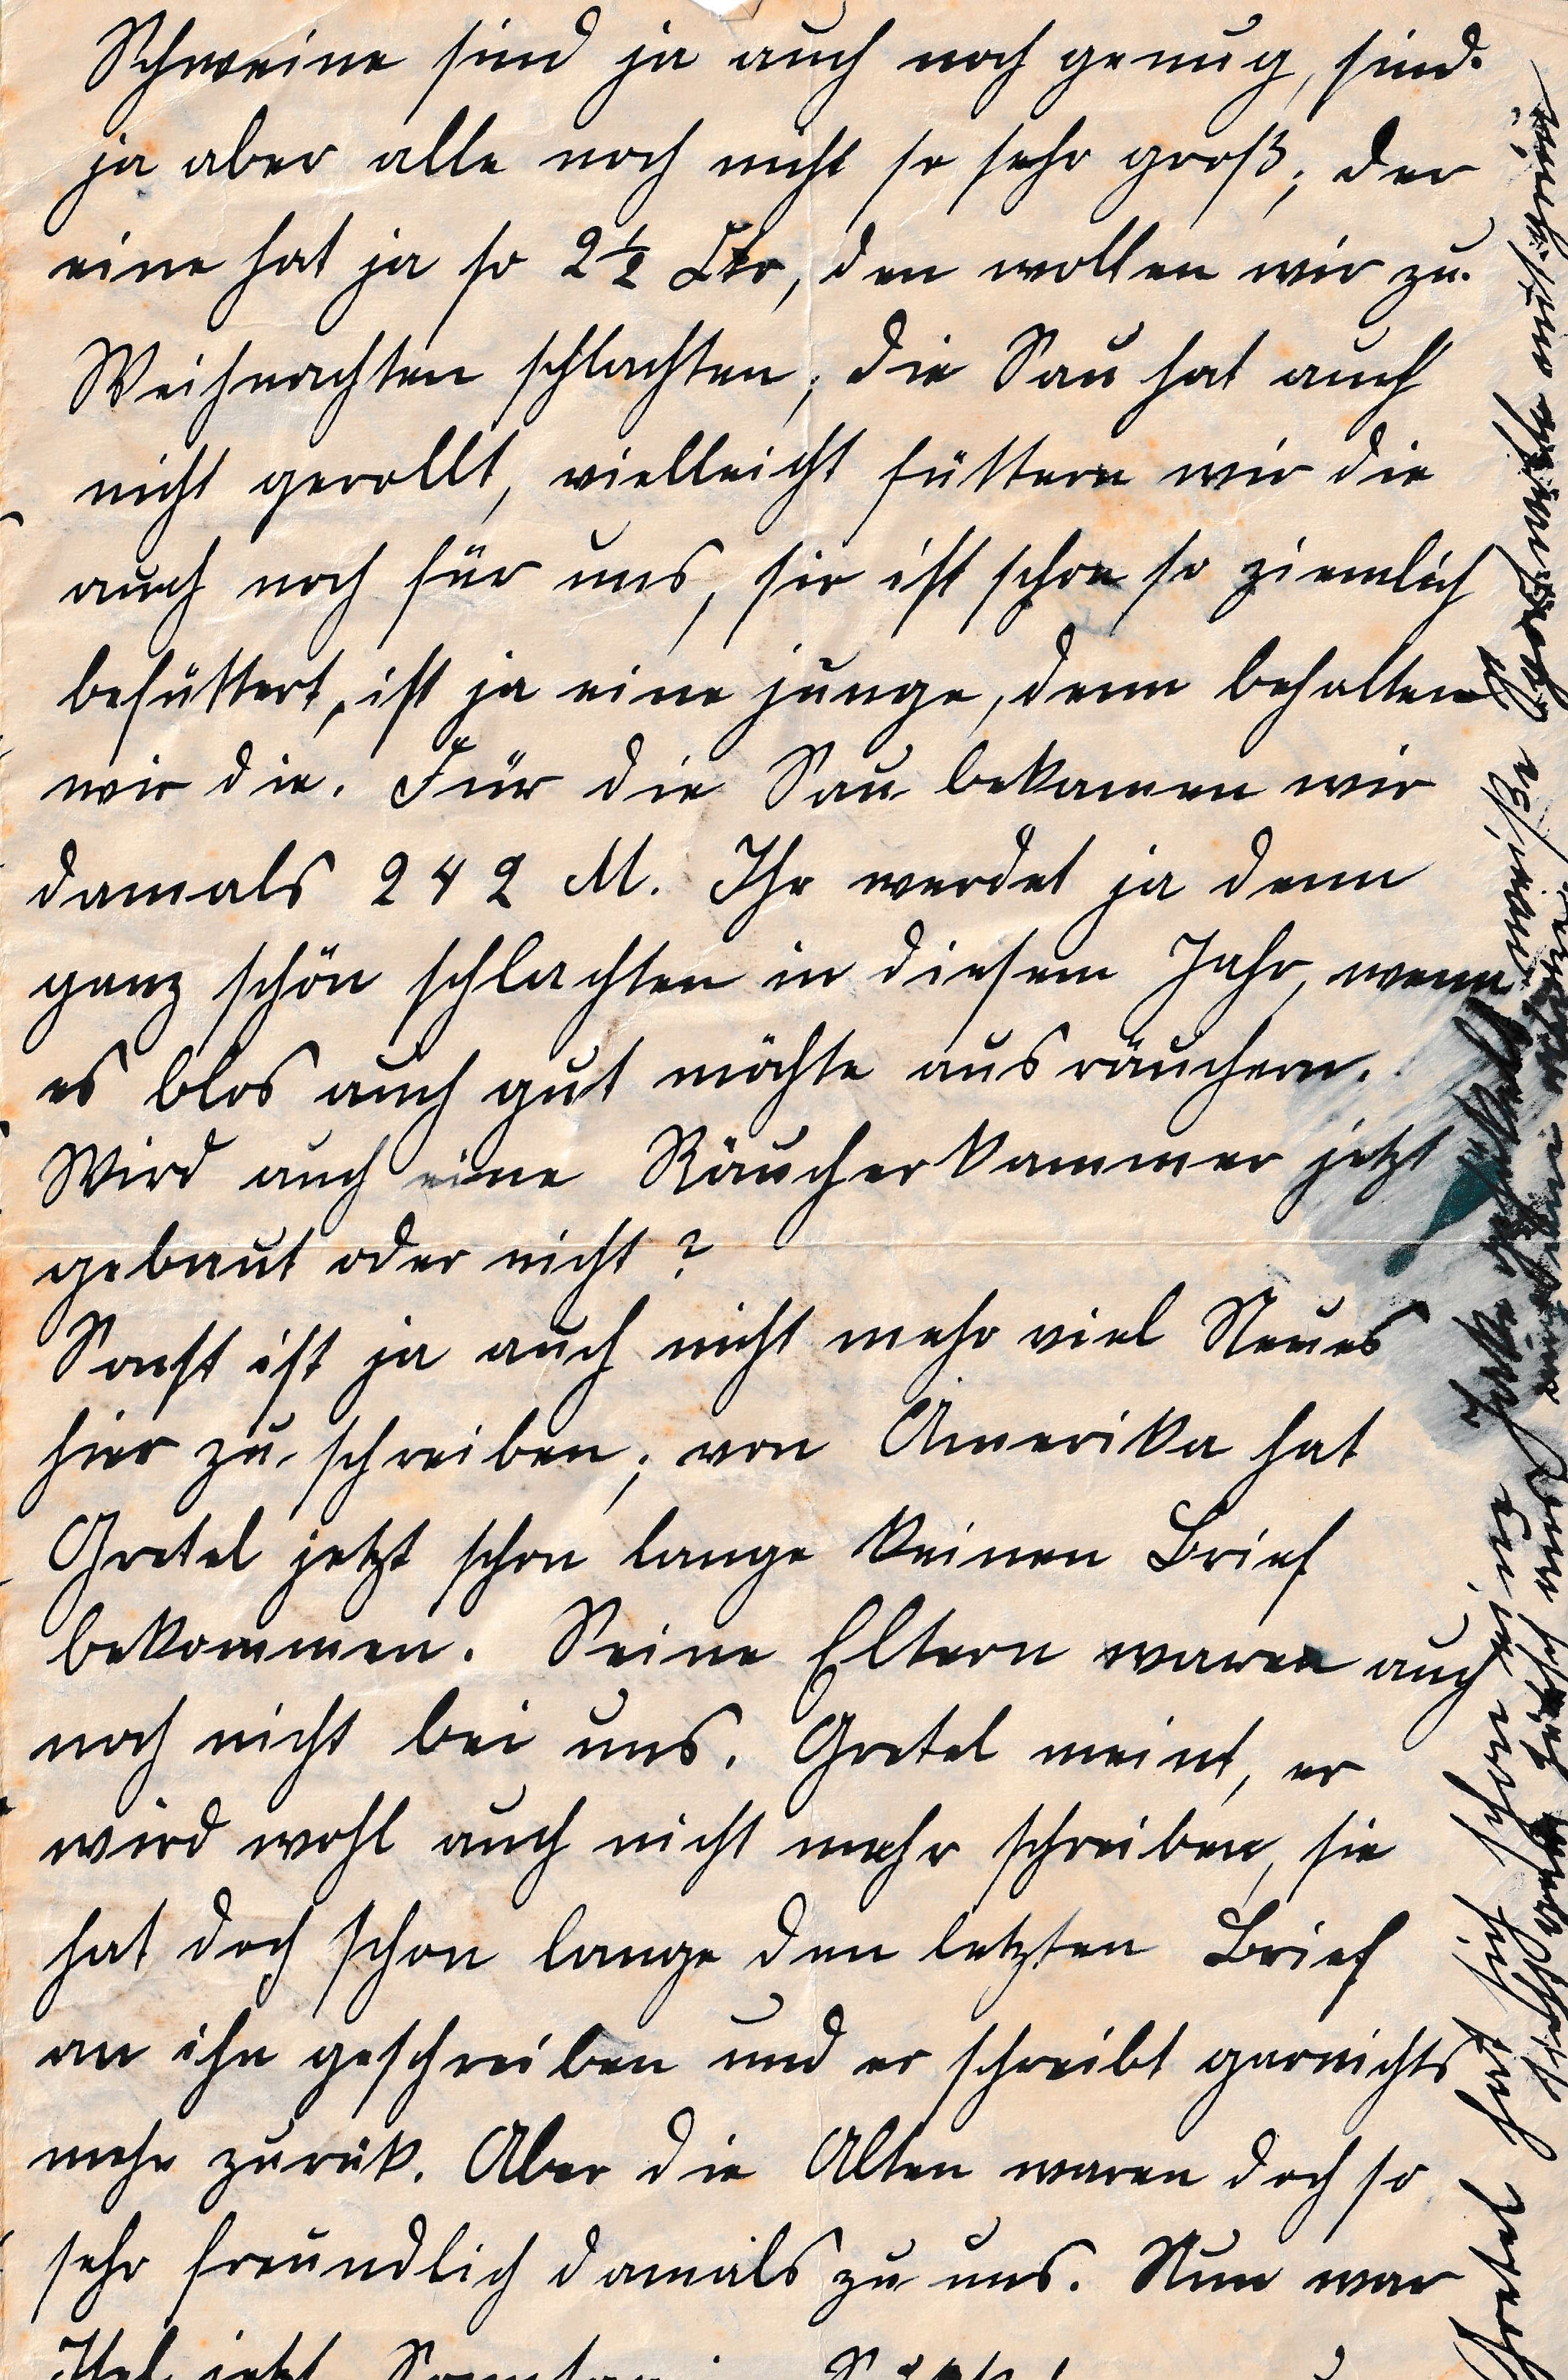 Schweine sind ja auch noch genug, sind
ja aber alle noch nicht so sehr groß; der
eine hat ja so 2½ Ztr, den wollen wir zu
Weihnachten schlachten; die Sau hat auch
nicht gerollt, vielleicht füttern wir die
auch noch für uns, sie ist schon so ziemlich
befüttert, ist ja eine junge, denn behalten
wir die. Für die Sau bekamen wir
damals 242 M. Ihr werdet ja denn
ganz schön schlachten in diesem Jahr, wenn
es blos auch gut möchte ausräuchern.
Wird auch eine Räucherkammer jetzt
gebaut oder nicht?
Sonst ist ja auch nicht mehr viel Neues
hier zu schreiben; von Amerika hat
Gretel jetzt schon lange keinen Brief
bekommen. Seine Eltern waren auch
noch nicht bei uns. Gretel meint, er
wird wohl auch nicht mehr schreiben, sie
hat doch schon lange den letzten Brief
an ihn geschreiben und er schreibt garnichts
mehr zurük. Aber die Alten waren doch so
sehr freundlich damals zu uns. Nun war
jetzt Sonntag